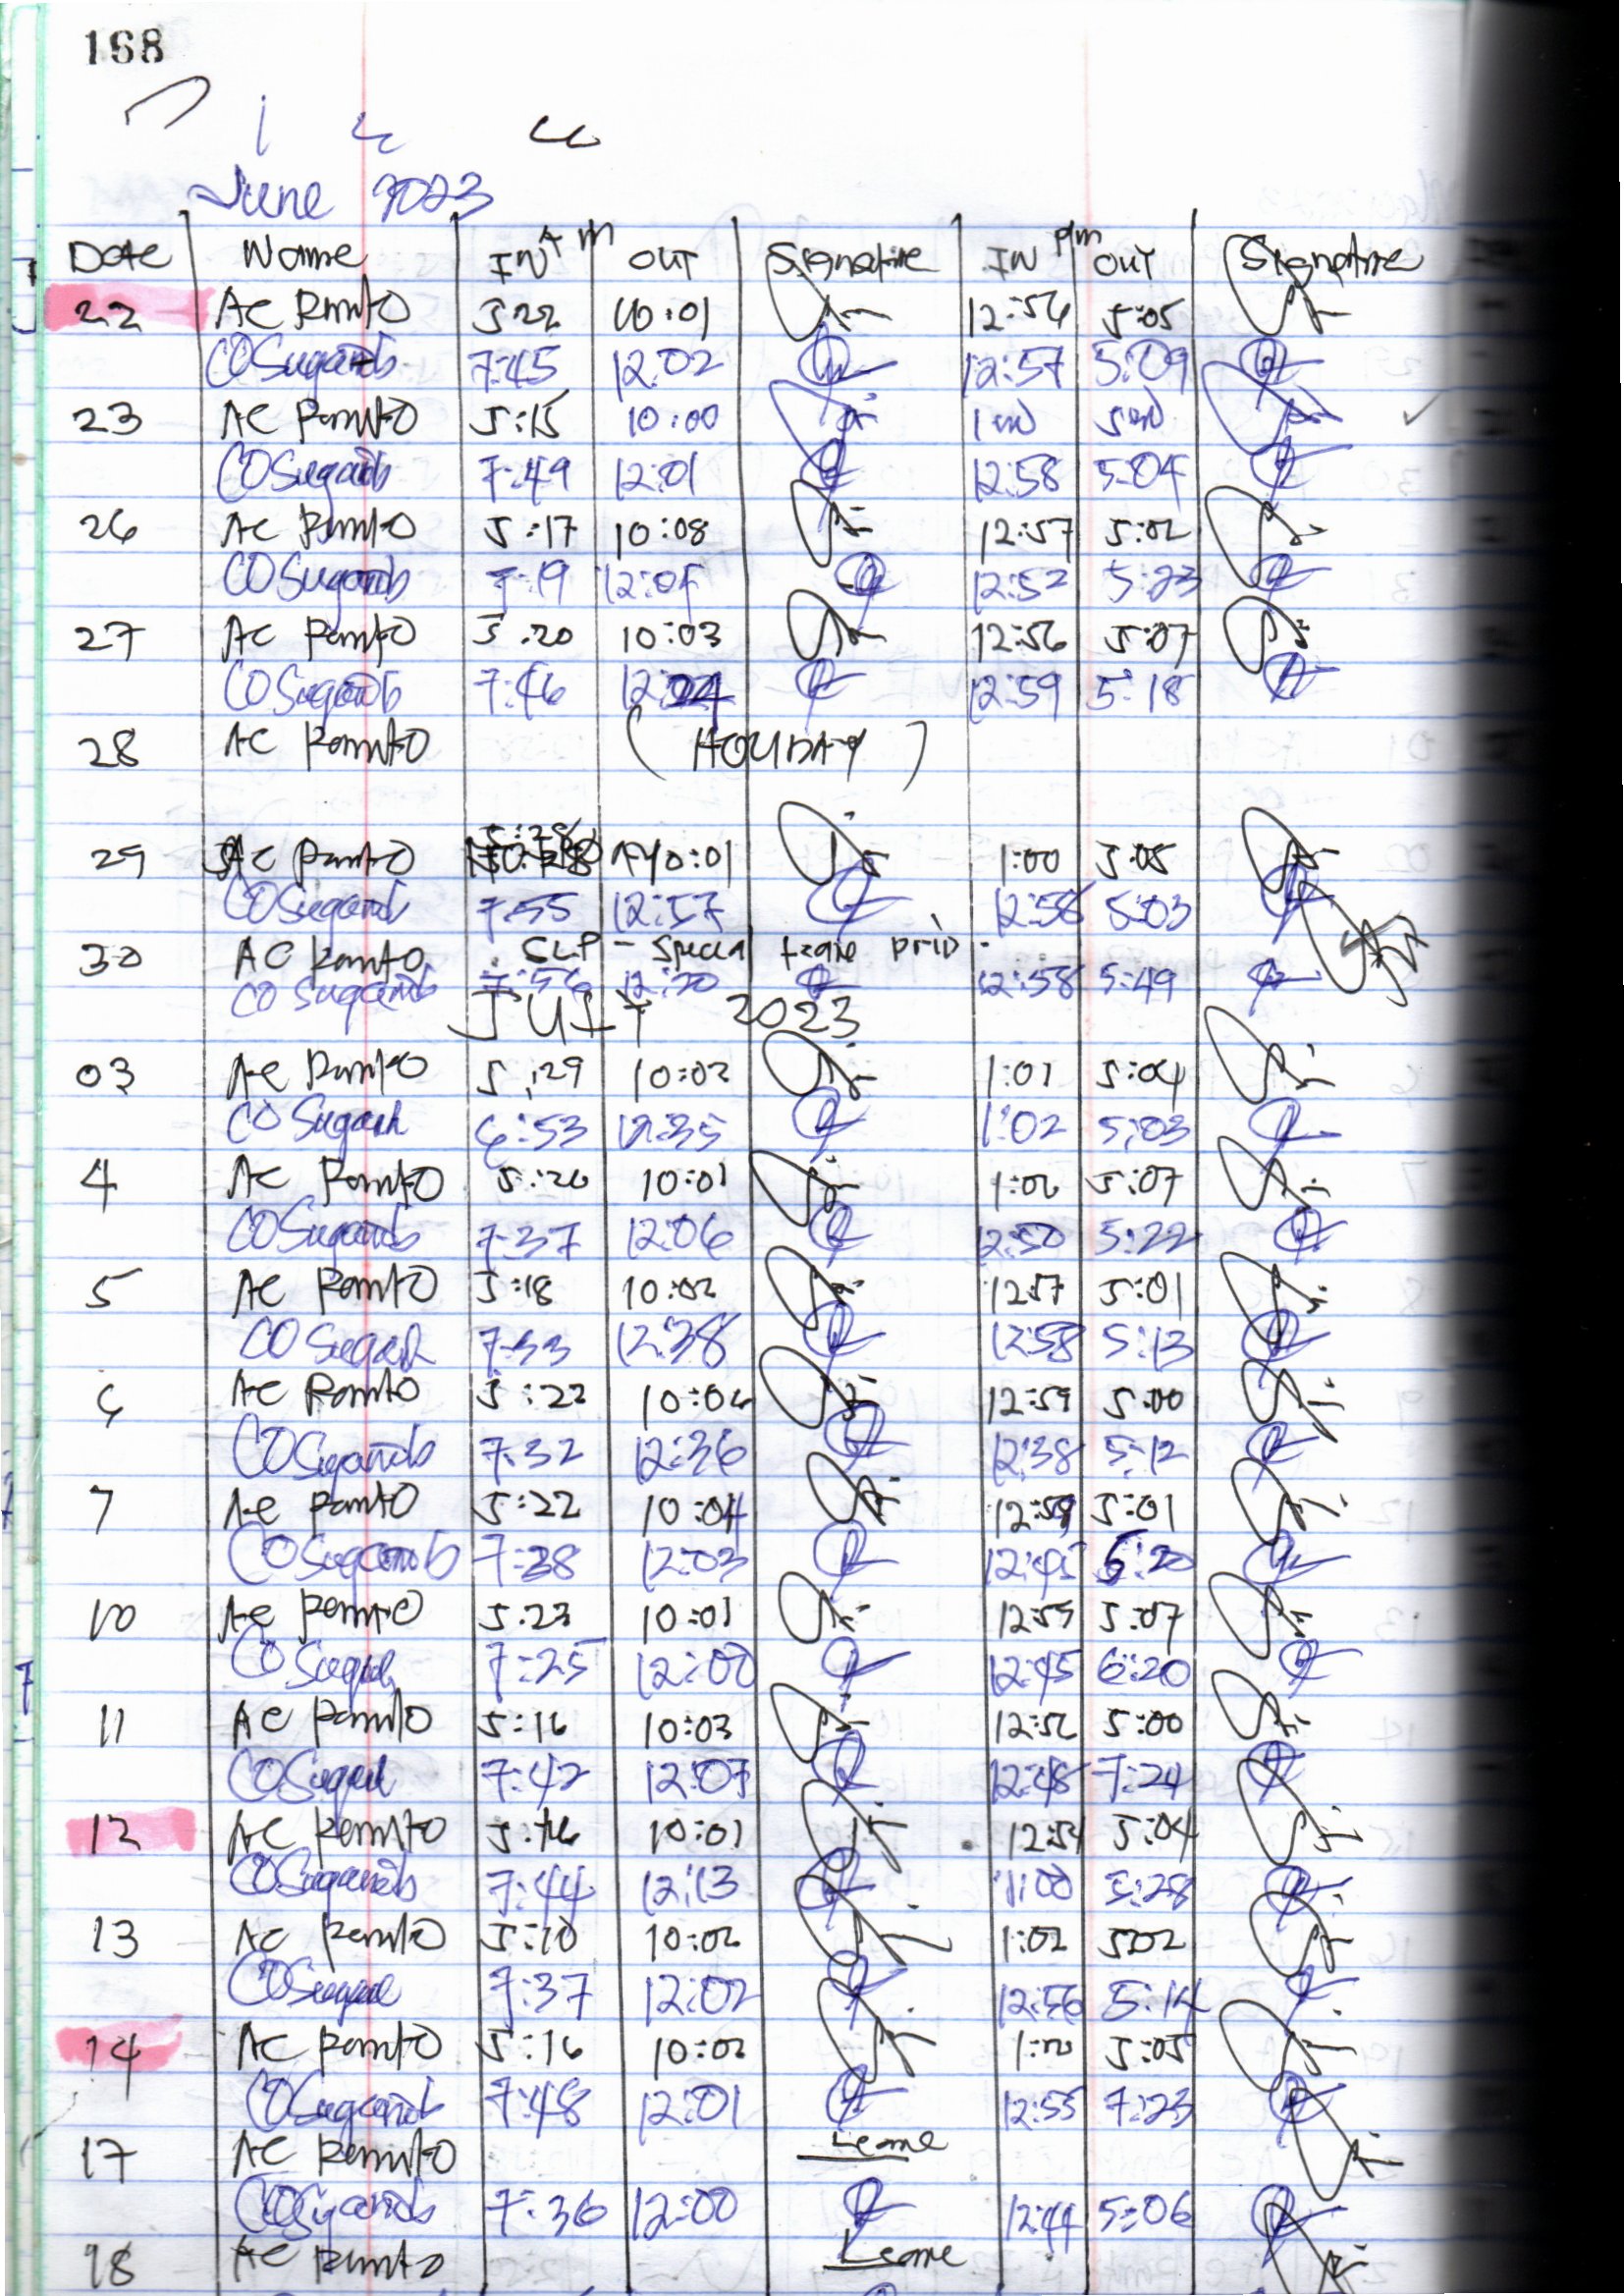 168
June 2023
Am pm
Date Name IN OUT Signature IN OUT Signature
22 AC Ramto 5:22 10:01 12:56 5:05
CO Sugarob 7:45 12:02 12:57 5:09
23 AC Ramto 5:15 10:00 1:00 5:00
CO Sugarob 7:49 12:01 12:58 5:04
26 AC Ramto 5:17 10:08 12:57 5:02
CO Sugarob 7:19 12:05 12:52 5:23
27 AC Ramto 5:20 10:03 12:56 5:07
CO Sugarob 7:46 12:04 12:59 5:18
28 AC Ramto (HOLIDAY)
29 AC Ramto 5:28 10:01 1:00 5:05
CO Sugarob 7:55 12:57 12:58 5:03
30 AC Ramto SLP - Special Leave priv.
CO Sugarob 7:56 12:20 12:58 5:49
JULY 2023
03 AC Ramto 5:29 10:02 1:01 5:04
CO Sugarob 6:53 12:35 1:02 5:03
4 AC Ramto 5:26 10:01 1:00 5:07
CO Sugarob 7:37 12:06 12:50 5:22
5 AC Ramto 5:18 10:02 12:57 5:01
CO Sugarob 7:53 12:38 12:58 5:13
6 AC Ramto 5:22 10:06 12:59 5:00
CO Sugarob 7:32 12:36 12:38 5:12
7 AC Ramto 5:22 10:04 12:59 5:01
CO Sugarob 7:38 12:03 12:45 6:20
10 AC Ramto 5:23 10:01 12:55 5:07
CO Sugarob 7:25 12:00 12:45 6:20
11 AC Ramto 5:16 10:03 12:56 5:00
CO Sugarob 7:42 12:07 12:48 7:24
12 AC Ramto 5:16 10:01 12:54 5:04
CO Sugarob 7:44 12:13 1:00 5:28
13 AC Ramto 5:10 10:02 1:02 5:02
CO Sugarob 7:37 12:02 12:56 5:14
14 AC Ramto 5:16 10:02 1:00 5:05
CO Sugarob 7:48 12:01 12:55 7:23
17 AC Ramto Leave
CO Sugarob 7:36 12:00 12:44 5:06
18 AC Ramto Leave